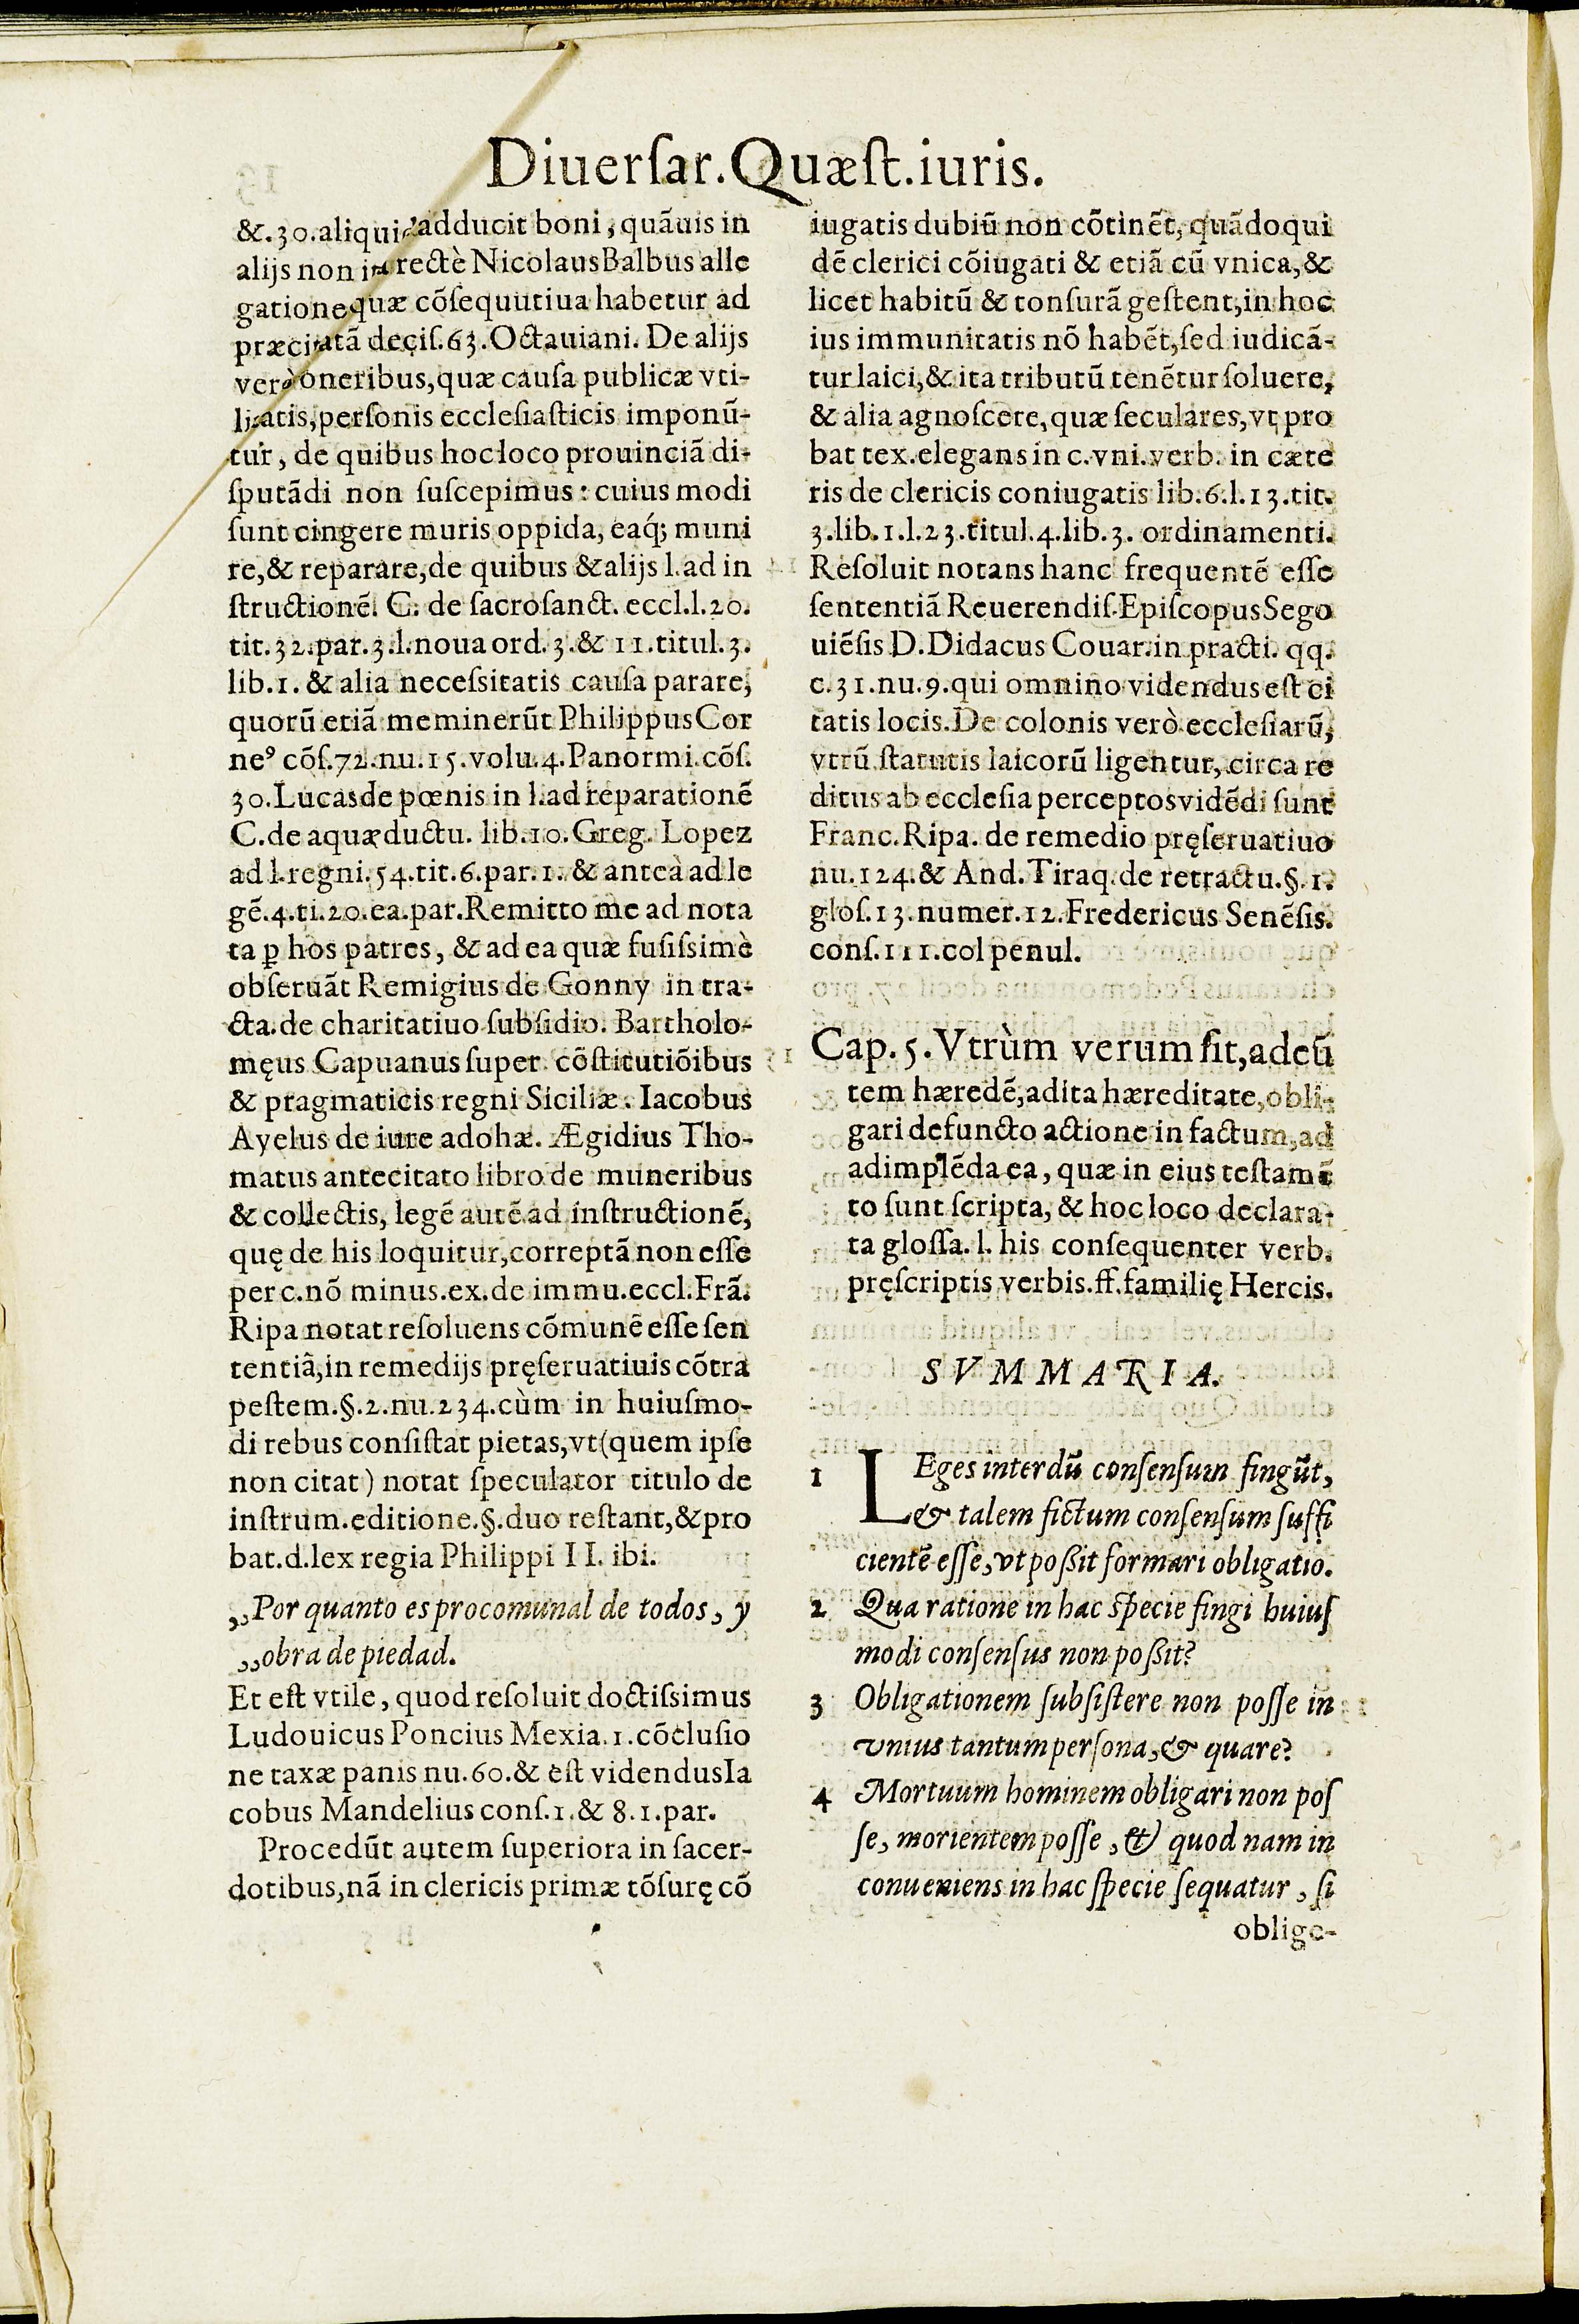 Diuerſar.Quæſt.iuris.
&.30.aliquid adducit boni, quãuis in
alijs non ita rectè Nicolaus Balbus alle
gatione quæ cõſequutiua habetur ad
præcitatã deciſ.63.Octauiani. De alijs
verò oneribus,quæ cauſa publicæ vti-
litatis,perſonis eccleſiaſticis imponũ-
tur, de quibus hoc loco prouinciã di-
ſputãdi non ſuſcepimus: cuius modi
ſunt cingere muris oppida, eaq́; muni
re,& reparare,de quibus & alijs l.ad in
ſtructionẽ. C. de ſacroſanct. eccl.l.20.
tit.32.par.3.l.noua ord.3.& 11.titul.3.
lib.1. & alia neceſsitatis cauſa parare,
quorũ etiã meminerũt Philippus Cor
neꝰ cõſ.72.nu.15.volu.4.Panormi.cõſ.
30.Lucas de pœnis in l.ad reparationẽ
C.de aquæductu. lib.10.Greg. Lopez
ad l.regni.54.tit.6.par.1. & anteà ad le
gẽ.4.ti.20.ea.par.Remitto me ad nota
ta ꝑ hos patres, & ad ea quæ fuſiſsimè
obſeruãt Remigius de Gonny in tra-
cta.de charitatiuo ſubſidio. Bartholo-
męus Capuanus ſuper cõſtitutiõibus
& pragmaticis regni Siciliæ. Iacobus
Ayelus de iure adohæ. Ægidius Tho-
matus antecitato libro de muneribus
& collectis, legẽ autẽ ad inſtructionẽ,
quę de his loquitur,correptã non eſſe
per c.nõ minus.ex.de immu.eccl.Frã.
Ripa notat reſoluens cõmunẽ eſſe ſen
tentiã,in remedijs pręſeruatiuis cõtra
peſtem.§.2.nu.234.cùm in huiuſmo-
di rebus conſiſtat pietas,vt(quem ipſe
non citat) notat ſpeculator titulo de
inſtrum.editione.§.duo reſtant,& pro
bat.d.lex regia Philippi II. ibi.
,,Por quanto es procomunal de todos, y
,,obra de piedad.
Et eſt vtile, quod reſoluit doctiſsimus
Ludouicus Poncius Mexia.1.cõcluſio
ne taxæ panis nu.60.& eſt videndus Ia
cobus Mandelius conſ.1.& 8.1.par.
Procedũt autem ſuperiora in ſacer-
dotibus,nã in clericis primæ tõſurę cõ
iugatis dubiũ non cõtinẽt, quãdoqui
dẽ clerici cõiugati & etiã cũ vnica,&
licet habitũ & tonſurã geſtent,in hoc
ius immunitatis nõ habẽt,ſed iudicã-
tur laici,& ita tributũ tenẽtur ſoluere,
& alia agnoſcere,quæ ſeculares,vt pro
bat tex.elegans in c.vni.verb. in cæte
ris de clericis coniugatis lib.6.l.13.tit.
3.lib.1.l.23.titul.4.lib.3. ordinamenti.
Reſoluit notans hanc frequentẽ eſſe
ſententiã Reuerendiſ.Epiſcopus Sego
uiẽſis D.Didacus Couar.in practi. qq.
c.31.nu.9.qui omnino videndus eſt ci
tatis locis.De colonis verò eccleſiarũ,
vtrũ ſtatutis laicorũ ligentur, circa re
ditus ab eccleſia perceptos vidẽdi ſunt
Franc.Ripa. de remedio pręſeruatiuo
nu.124.& And.Tiraq.de retractu.§.1.
gloſ.13.numer.12.Fredericus Senẽſis.
conſ.111.col penul.
Cap.5.Vtrùm verum ſit,adeũ
tem hæredẽ,adita hæreditate,obli-
gari defuncto actione in factum,ad
adimplẽda ea, quæ in eius teſtamẽ
to ſunt ſcripta, & hoc loco declara-
ta gloſſa. l. his conſequenter verb.
pręſcriptis verbis.ff.familię Hercis.
SVMMARIA.
1 LEges interdũ conſenſum fingũt,
& talem fictum conſenſum ſuffi
cientẽ eſſe,vt poßit formari obligatio.
2 Qua ratione in hac ſpecie fingi huiuſ
modi conſenſus non poßit?
3 Obligationem ſubſiſtere non poſſe in
vnius tantum perſona,& quare?
4 Mortuum hominem obligari non poſ
ſe, morientem poſſe, & quod nam in
conueniens in hac ſpecie ſequatur, ſi
oblige-